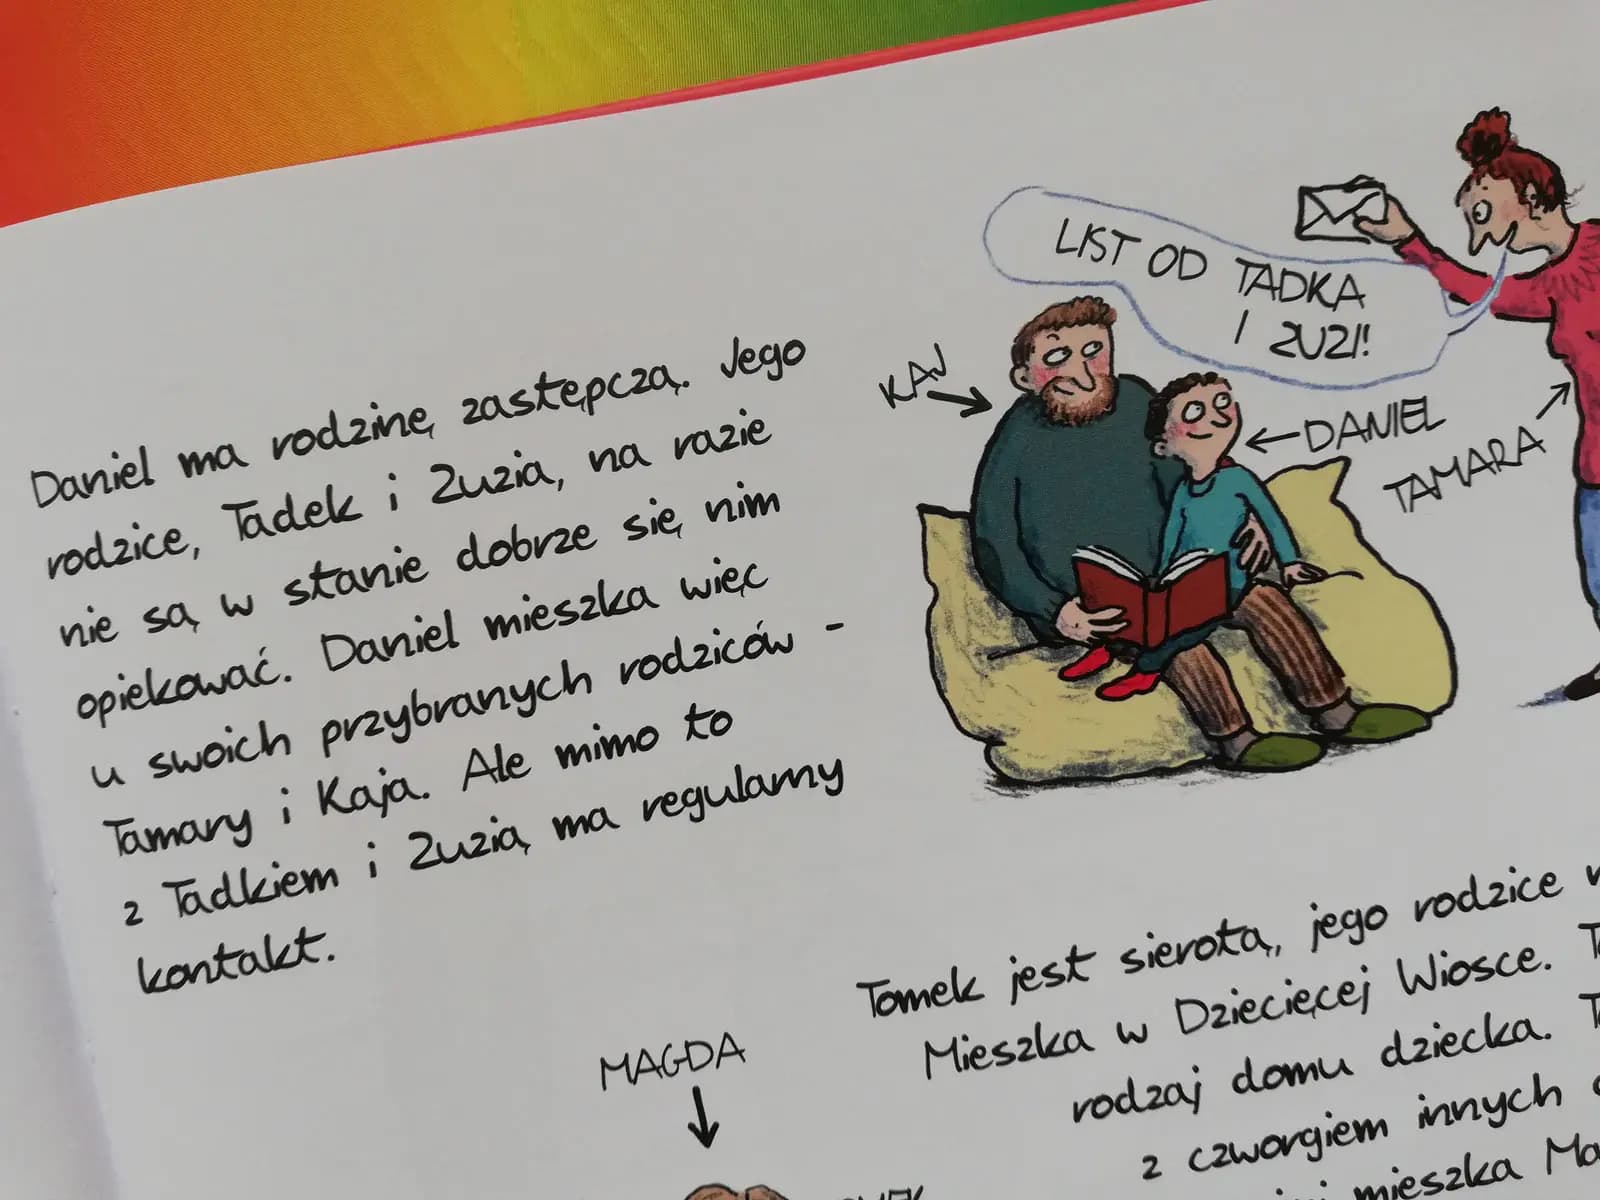 Daniel ma rodzinę zastępczą. Jego
rodzice, Tadek i Zuzia, na razie
nie są w stanie dobrze się nim
opiekować. Daniel mieszka więc
u swoich przybranych rodziców -
Tamary i Kaja. Ale mimo to
z Tadkiem i Zuzią ma regularny
kontakt.
LIST OD TADKA
I ZUZI!
KAJ
DANIEL
TAMARA
MAGDA
Tomek jest sierotą, jego rodzice
Mieszka w Dziecięcej Wiosce.
rodzaj domu dziecka.
z czworgiem innych
mieszka